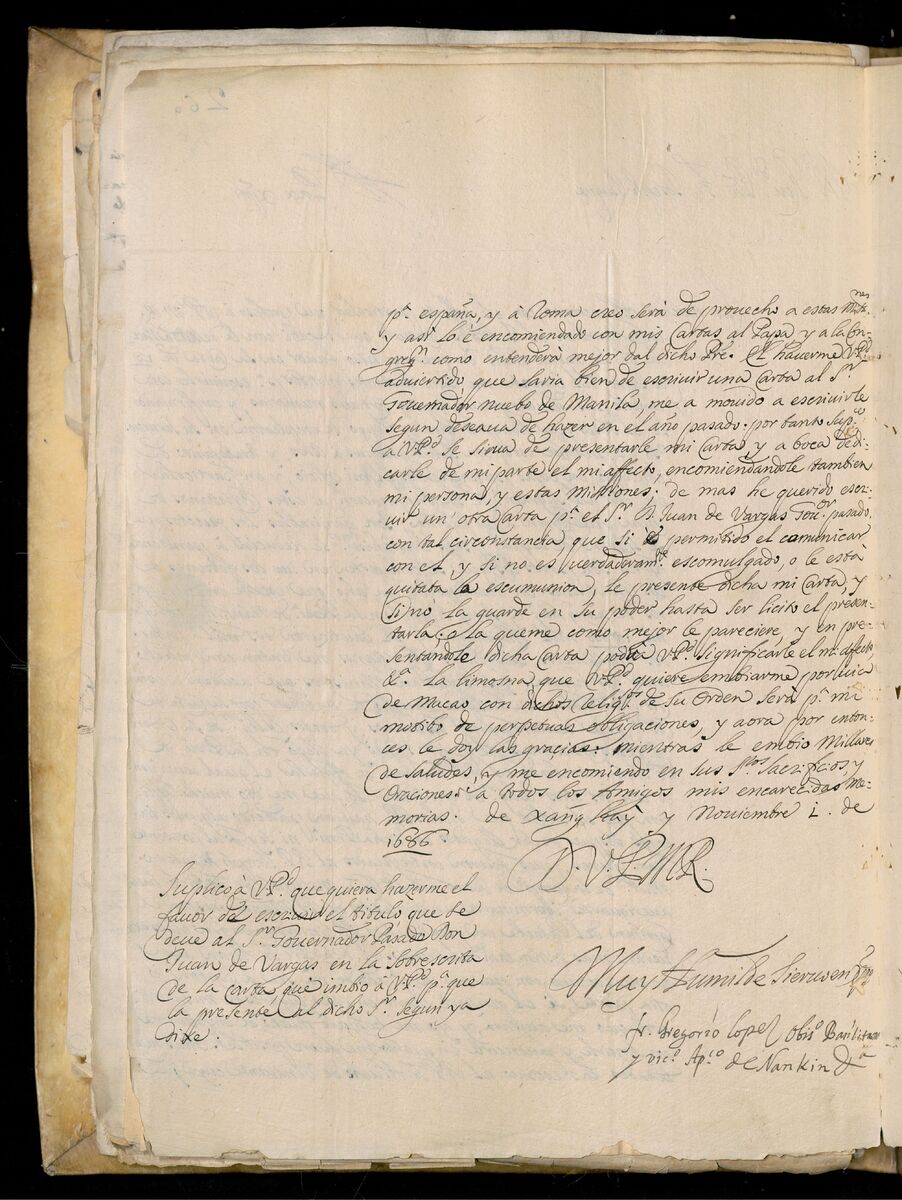 pª. españa, y à Roma creo serà de prouecho a estas Miss.nes
y asi lo è encomiendado con mis Cartas al Papa y a la Con-
gregn. como entenderà mejor dal dicho Pre. El hauerme V.P.
aduiertido, que saria bien de escriuir una Carta al Sr.
Gouernador nuebo de Manila, me a mouido a escriuirle
segun deseaua de hazer en el año pasado: por tanto Supco.
a V.P. se sirua de presentarle mi Carta, y a boca dedi-
carle de mi parte el mi affecto, encomiendandole tambien
mi persona, y estas Missiones. de mas he querido escri-
uir un' otra Carta pª. el Sr. D. Juan de Vargas Gouor. pasado,
con tal circonstancia que si è permitido el comunicar
con el, y si no es uerdaderamte. escomulgado, o le esta
quitata la escumunion, le presente dicha mi Carta, y
si no la guarde en su poder hasta ser licito el presen-
tarla: o la queme como mejor le pareciere, y en pre-
sentandole dicha Carta podrà V.P. significarle el mi affecto
&ª. La limosna que V.P. quiere embiarme por uia
de Macao con dichos Religsos. de Su Orden serà pª. mi
motibo de perpetuas obligaciones, y aora por enton-
ces le doy las gracias: mientras le embio Millares
de Saludes, y me encomiendo en sus Stos. Sacrificios y
Oraciones. a todos los Amigos mis encarecidas Me-
morias. de Xañg Hay y Noviembre 1. de
1686.
D. V. P. M. R.
Suplico à V.P. que quiera hazerme el
fauor de escriuir el titulo, que se
deue al Sr. Gouernador Pasado Don
Juan de Vargas en la Sobrescrita
de la carta, que imbio à V.P. pª. que
la presente al dicho Sr. segun ya
dixe.
Muy Humilde Sieruo en Xpto
fr. Gregorio Lopez Obispo Basilitano
y vico. Apco. de Nankin &ª